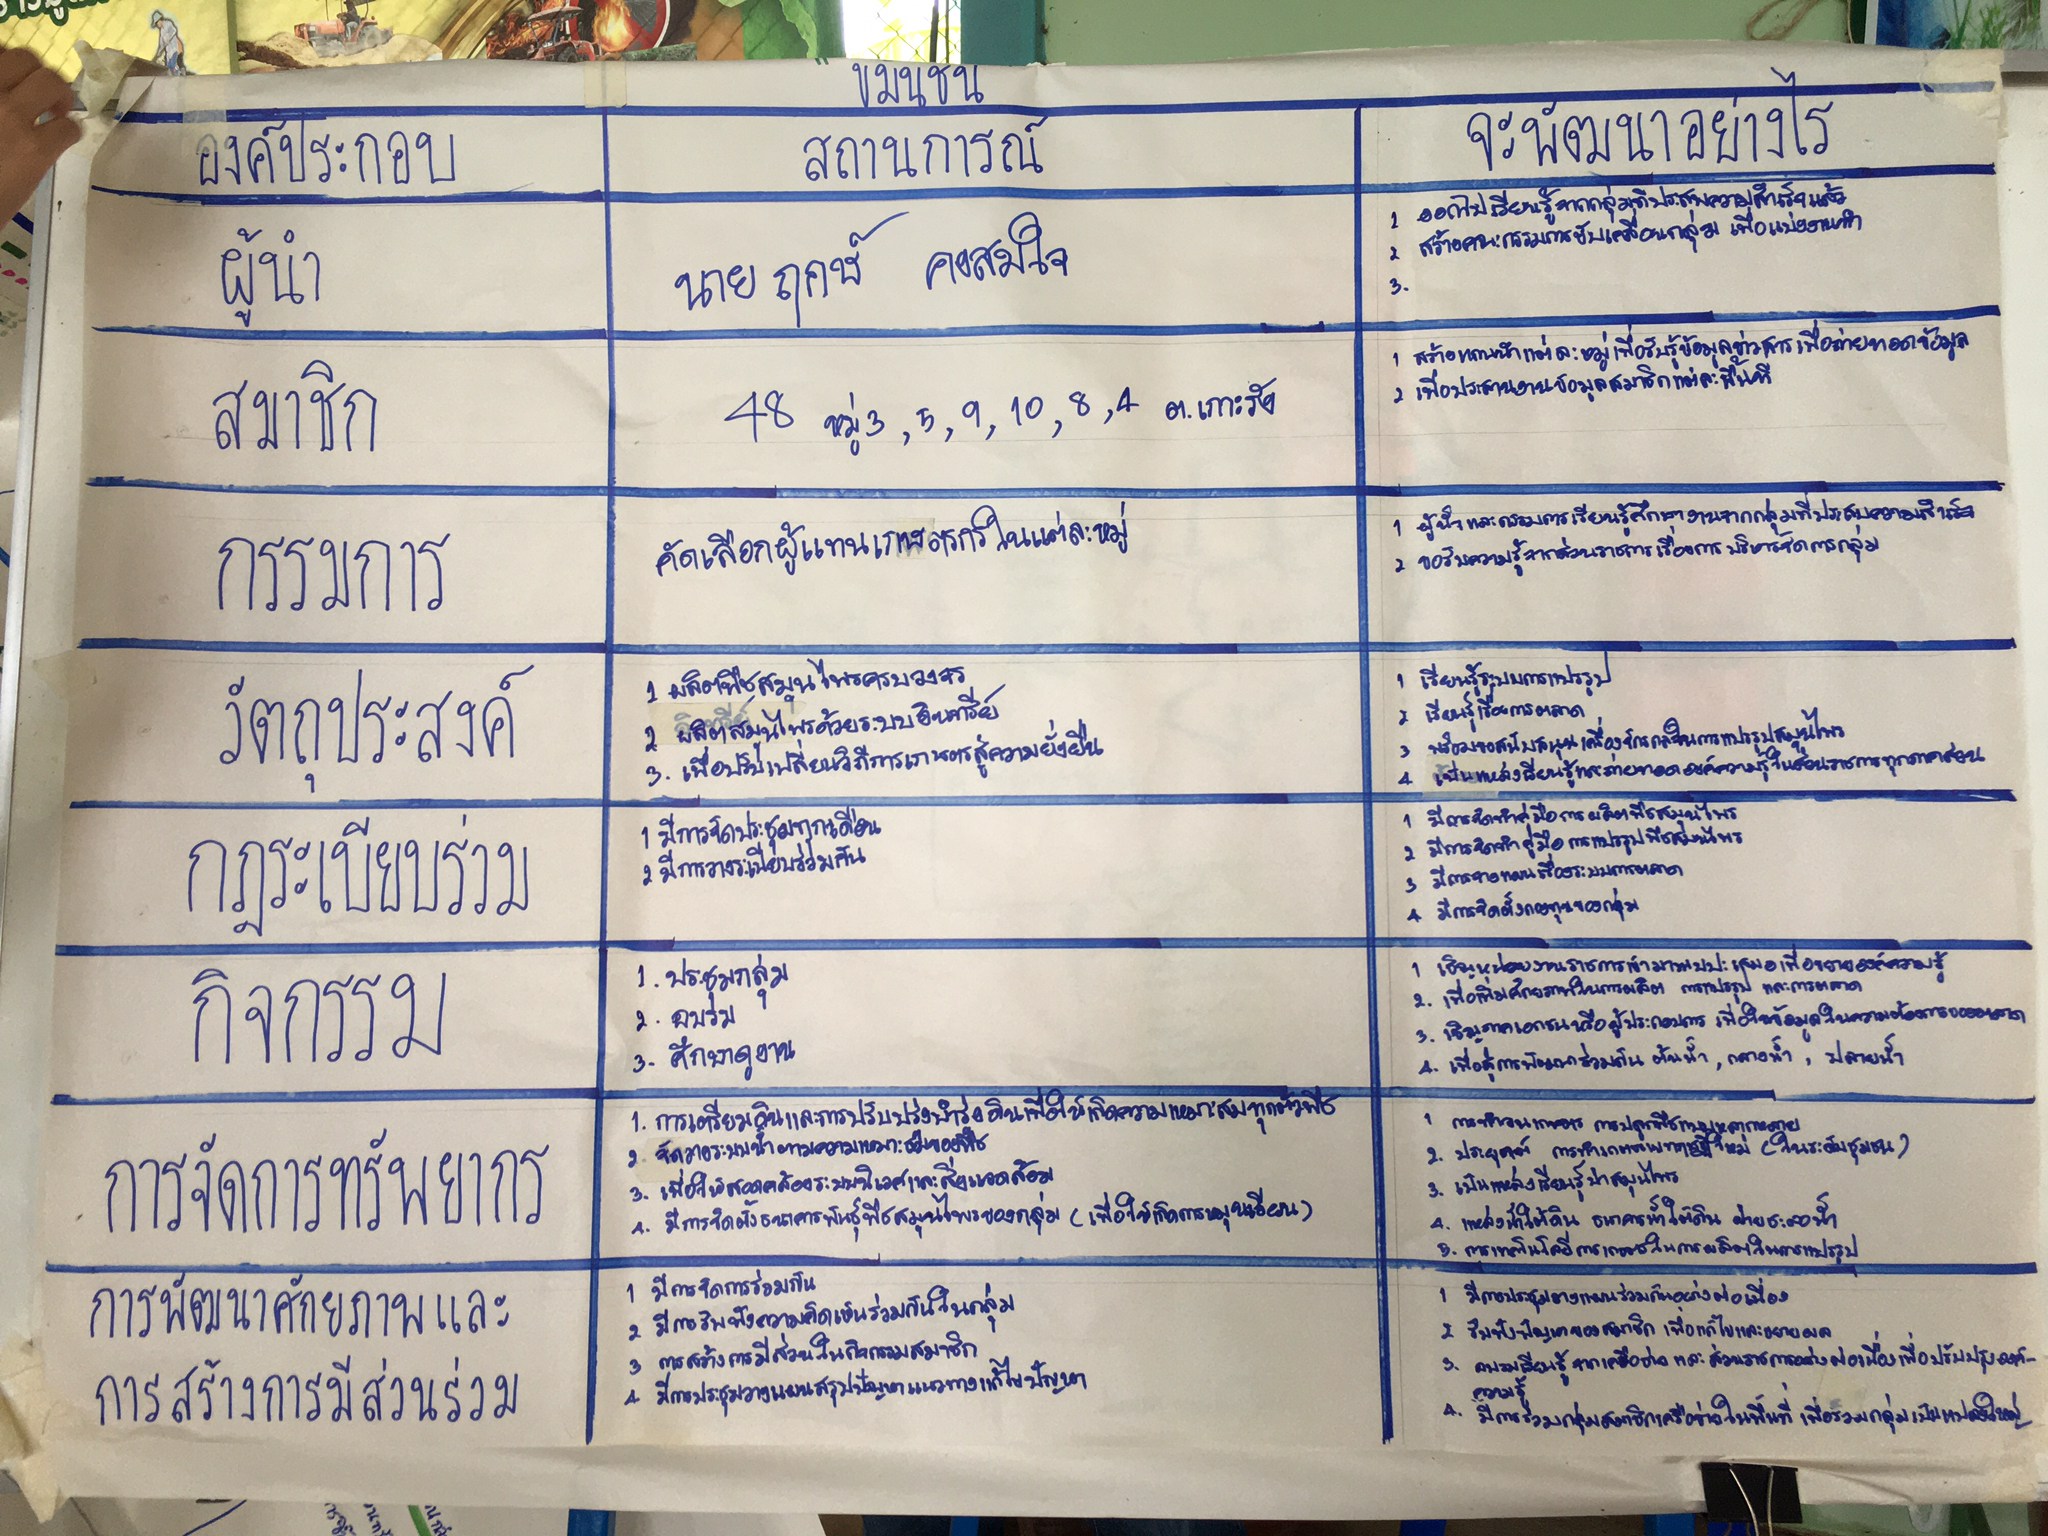 ขมนชน
องค์ประกอบ
สถานการณ์
จะพัฒนาอย่างไร
ผู้นำ
นาย ฤกษ์ คงสมใจ
1 ออกไปเรียนรู้จากกลุ่มที่ประสบความสำเร็จแล้ว
2 สร้างคณะกรรมการขับเคลื่อนกลุ่ม เพื่อแบ่งงานทำ
3.
สมาชิก
48 หมู่ 3 , 5 , 9 , 10 , 8 , 4 ต.เกาะรัง
1 สร้างแกนนำแต่ละหมู่เพื่อรับรู้ข้อมูลข่าวสารเพื่อถ่ายทอดข้อมูล
2 เพื่อประสานงานข้อมูลสมาชิกแต่ละพื้นที่
กรรมการ
คัดเลือกผู้แทนเกษตรกรในแต่ละหมู่
1 ผู้นำและกรรมการเรียนรู้ศึกษางานจากกลุ่มที่ประสบความสำเร็จ
2 ขอรับความรู้จากส่วนราชการเรื่องการบริหารจัดการกลุ่ม
วัตถุประสงค์
1 ผลิตพืชสมุนไพรครบวงจร
2 ผลิตสมุนไพรด้วยระบบอินทรีย์
3. เพื่อปรับเปลี่ยนวิถีการเกษตรสู่ความยั่งยืน
1 เรียนรู้ระบบการแปรรูป
2 เรียนรู้เรื่องการตลาด
3 พร้อมขอสนับสนุนเครื่องจักรกลในการแปรรูปสมุนไพร
4 เป็นแหล่งเรียนรู้และถ่ายทอดองค์ความรู้ในส่วนราชการทุกภาคส่วน
กฎระเบียบร่วม
1 มีการจัดประชุมทุกเดือน
2 มีการวางระเบียบร่วมกัน
1 มีการจัดทำคู่มือการผลิตพืชสมุนไพร
2 มีการจัดทำคู่มือการแปรรูปพืชสมุนไพร
3 มีการวางแผนเรื่องระบบการตลาด
4 มีการจัดตั้งกองทุนของกลุ่ม
กิจกรรม
1. ประชุมกลุ่ม
2. อบรม
3. ศึกษาดูงาน
1 เชิญหน่วยงานราชการเข้ามาพบปะเสมอเพื่อขยายองค์ความรู้
2. เพื่อเพิ่มศักยภาพในการผลิต การแปรรูป และการตลาด
3. เชิญภาคเอกชนหรือผู้ประกอบการ เพื่อให้ข้อมูลในความต้องการของตลาด
4. เพื่อสู่การพัฒนาร่วมกัน ต้นน้ำ , กลางน้ำ , ปลายน้ำ
การจัดการทรัพยากร
1. การเตรียมดินและการปรับปรุงบำรุงดินเพื่อให้เกิดความเหมาะสมทุกตัวพืช
2. จัดวางระบบน้ำตามความเหมาะสมของพืช
3. เพื่อให้สอดคล้องระบบนิเวศและสิ่งแวดล้อม
4. มีการจัดตั้งธนาคารพันธุ์พืชสมุนไพรของกลุ่ม (เพื่อให้เกิดการหมุนเวียน)
1 การทำวนเกษตร การปลูกพืชแบบหลากหลาย
2. ประยุกต์ การทำเกษตรทฤษฎีใหม่ (ในระดับชุมชน)
3. เป็นแหล่งเรียนรู้ป่าสมุนไพร
4. แหล่งน้ำใต้ดิน ธนาคารน้ำใต้ดิน ฝายชะลอน้ำ
5. การเทคโนโลยีการเกษตรในการผลิตในการแปรรูป
การพัฒนาศักยภาพและ
การสร้างการมีส่วนร่วม
1 มีการจัดการร่วมกัน
2 มีการรับฟังความคิดเห็นร่วมกันในกลุ่ม
3 การสร้างการมีส่วนในกิจกรรมสมาชิก
4 มีการประชุมวางแผนสรุปปัญหาแนวทางแก้ไขปัญหา
1 มีการประชุมวางแผนร่วมกันอย่างต่อเนื่อง
2 รับฟังปัญหาของสมาชิก เพื่อแก้ไขและขยายผล
3. อบรมเรียนรู้จากเครือข่ายและส่วนราชการอย่างต่อเนื่องเพื่อปรับปรุงองค์-
ความรู้
4. มีการรวมกลุ่มสมาชิกเครือข่ายในพื้นที่ เพื่อรวมกลุ่มเป็นแปลงใหญ่